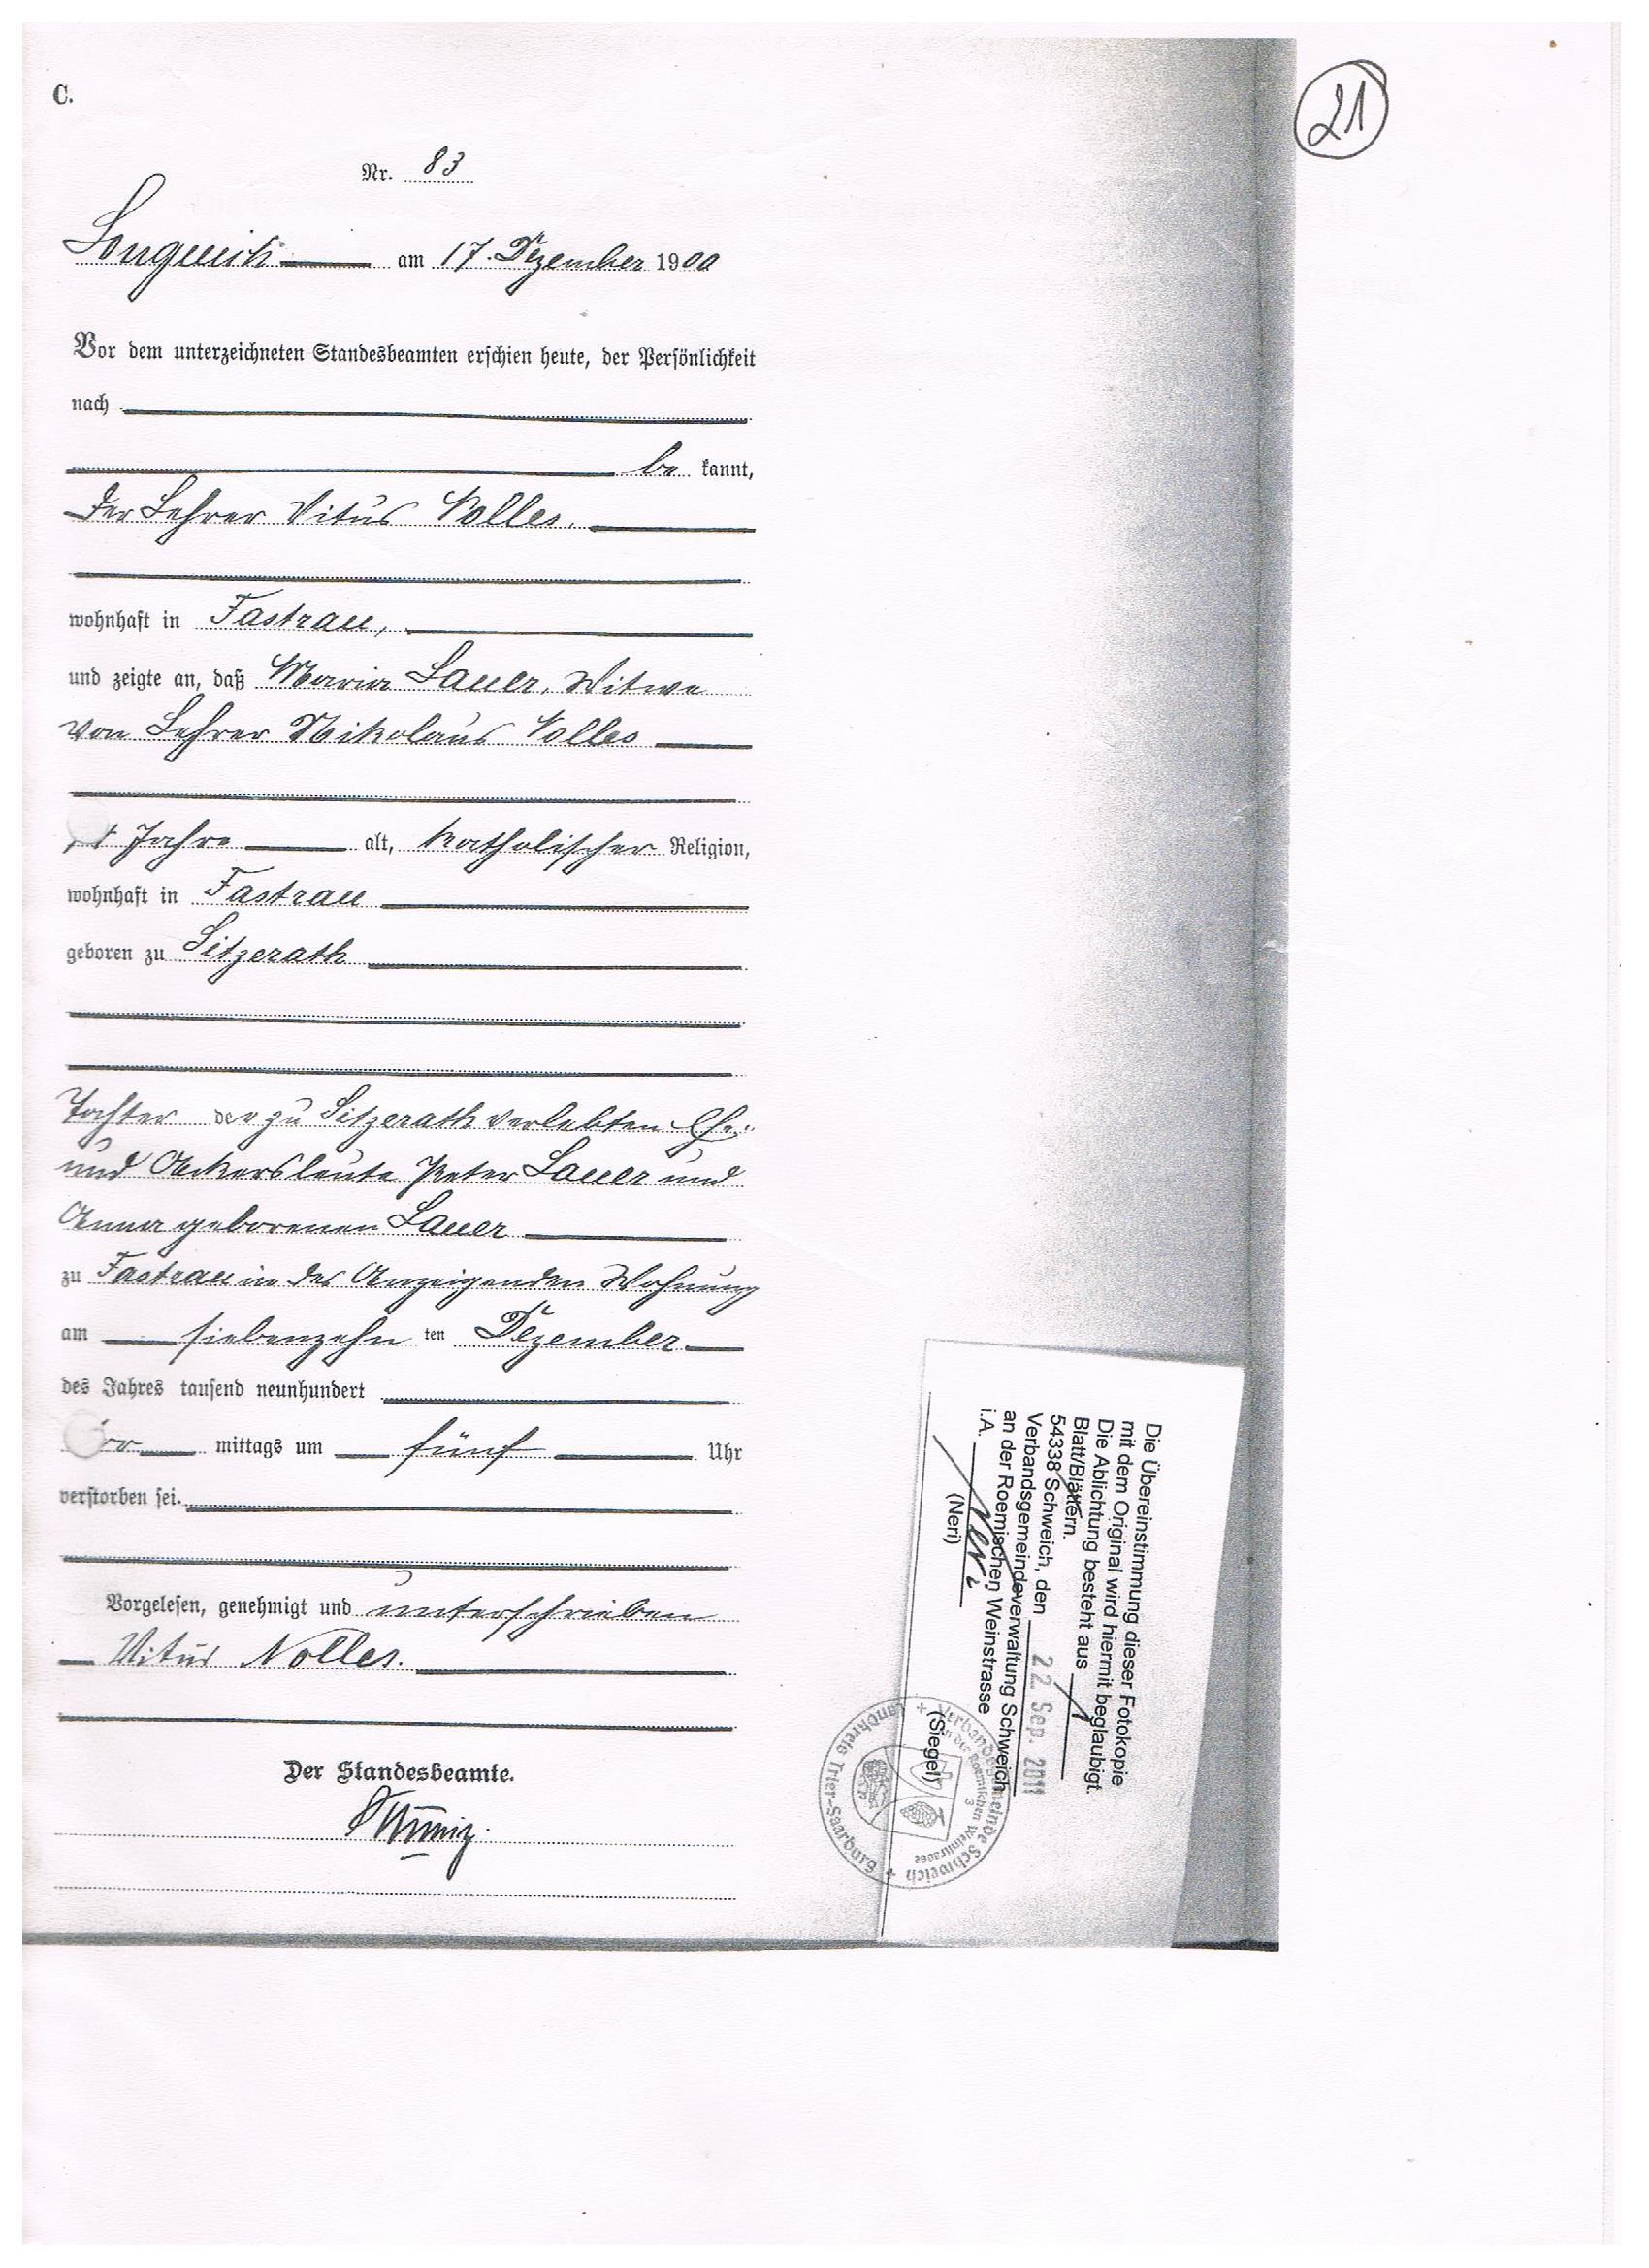 C.
21
Nr. 83
Longuich am 17. Dezember 1900
Vor dem unterzeichneten Standesbeamten erschien heute, der Persönlichkeit
nach
be kannt,
der Lehrer Vitus Nolles.
wohnhaft in Fastrau,
und zeigte an, daß Maria Lauer, Witwe
von Lehrer Nikolaus Nolles
Jahre alt, katholischer Religion,
wohnhaft in Fastrau
geboren zu Sitzerath
Tochter der zu Sitzerath verlebten Ehe-
und Ackersleute Peter Lauer und
Anna geborenen Lauer
zu Fastrau in des Anzeigenden Wohnung
am siebenzehn ten Dezember
des Jahres tausend neunhundert
mittags um fünf Uhr
verstorben sei.
Vorgelesen, genehmigt und unterschrieben
Vitus Nolles.
Der Standesbeamte.
Die Übereinstimmung dieser Fotokopie
mit dem Original wird hiermit beglaubigt.
Die Ablichtung besteht aus 1
Blatt/Blättern.
54338 Schweich, den 22. Sep. 2011
Verbandsgemeindeverwaltung Schweich
an der Roemischen Weinstrasse
i.A. Neri
(Neri)
(Siegel)
Verbandsgemeinde Schweich
an der Roemischen Weinstrasse
3
Landkreis Trier-Saarburg